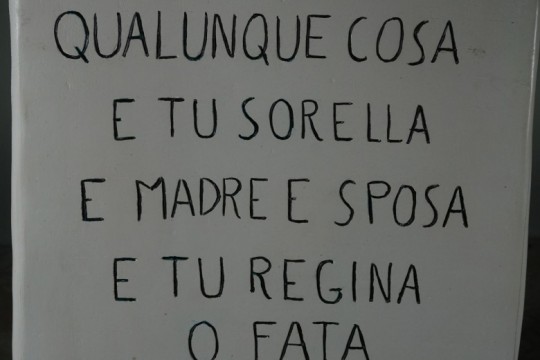 QUALUNQUE COSA
E TU SORELLA
E MADRE E SPOSA
E TU REGINA
O FATA